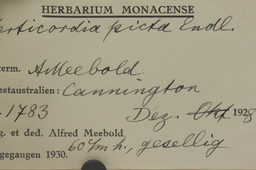 HERBARIUM MONACENSE
Verticordia picta Endl.
term. AMeebold
estaustralien: Cannington
1783 Dez. Okt 1928
g. et ded. Alfred Meebold.
gegangen 1930. 60 cm h., gesellig